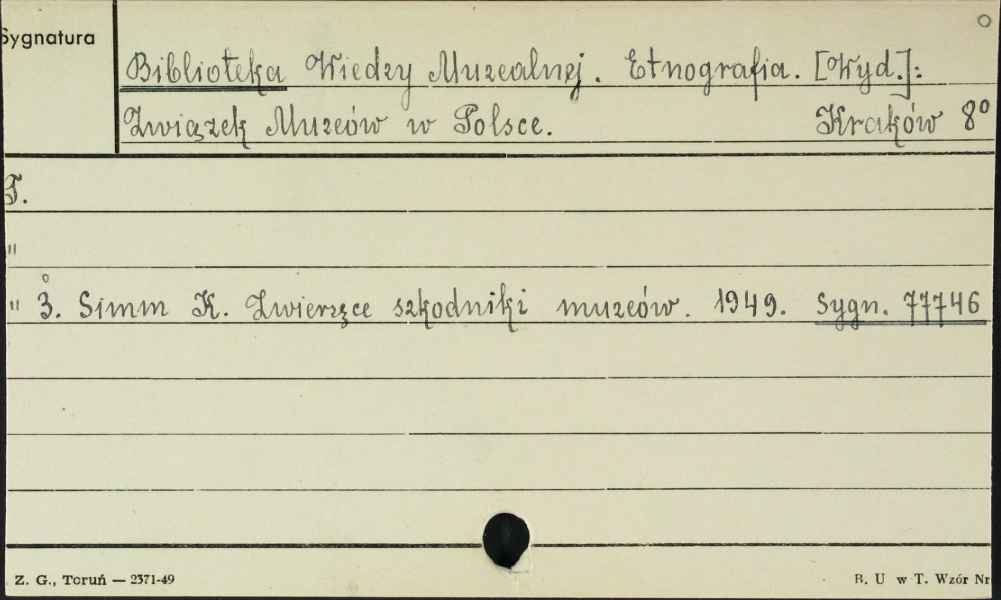 Sygnatura
Biblioteka Wiedzy Muzealnej. Etnografia. [Wyd.]:
Związek Muzeów w Polsce. Kraków 8°
T.
"
" 3. Simm K. Zwierzęce szkodniki muzeów. 1949. Sygn. 77746
Z. G., Toruń — 2371-49
B. U w T. Wzór Nr